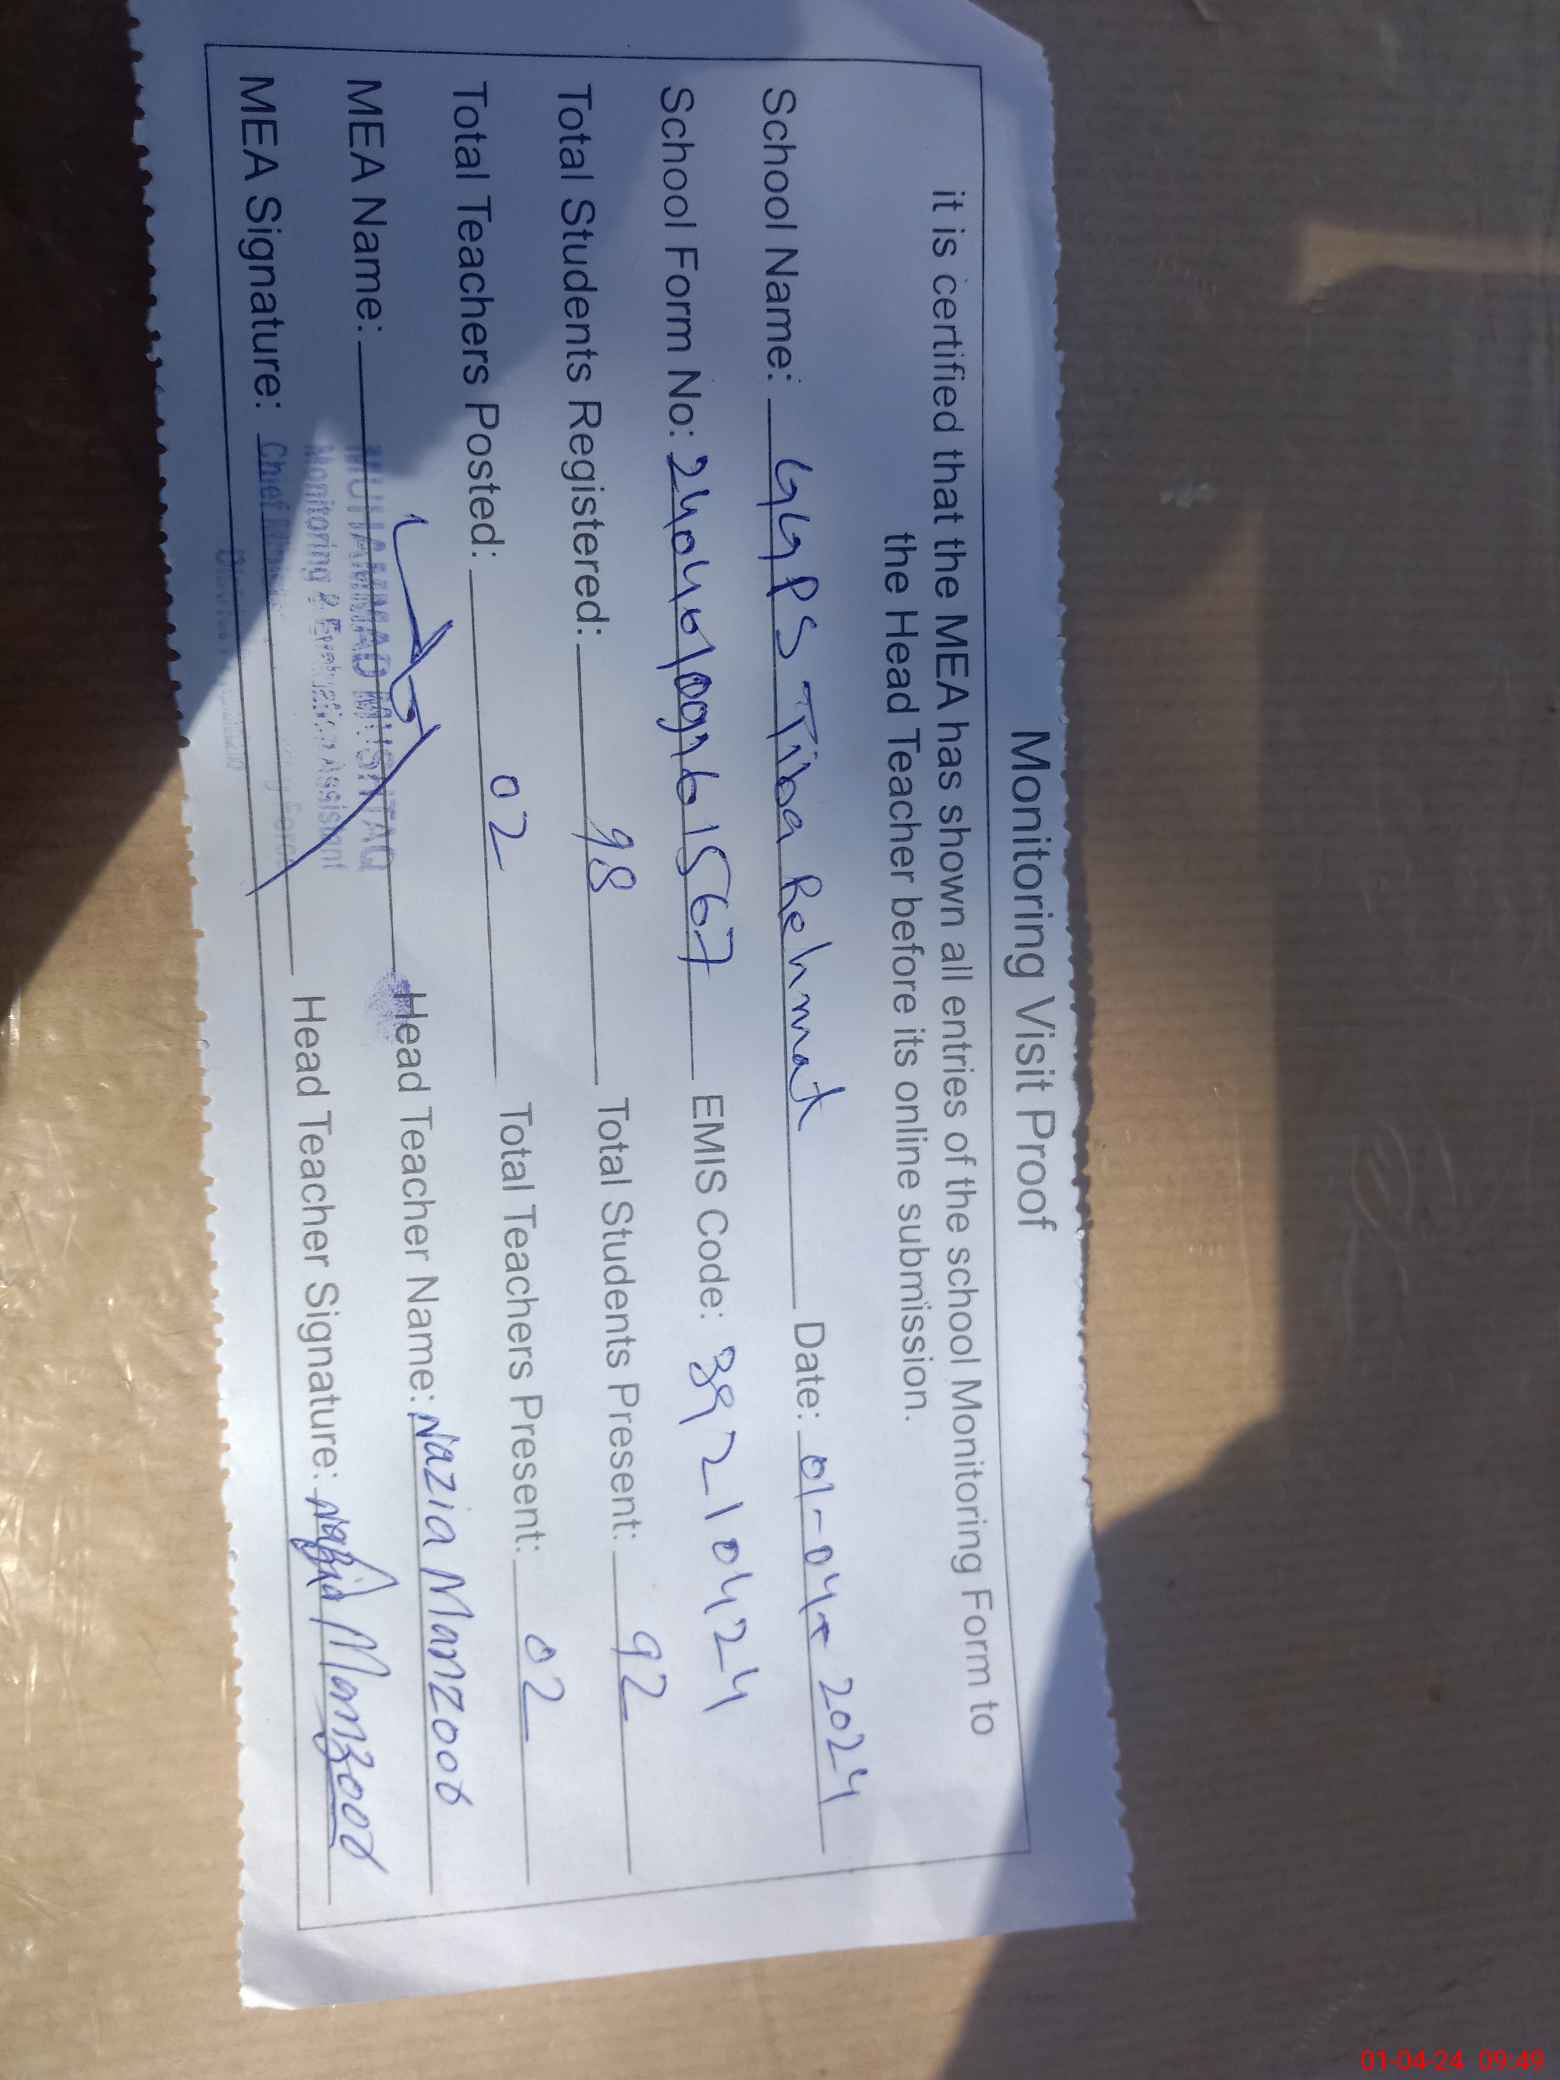 Monitoring Visit Proof
it is certified that the MEA has shown all entries of the school Monitoring Form to
the Head Teacher before its online submission.
School Name: GGPS Tiba Rehmat Date: 01-04-2024
School Form No: EMIS Code: 39210424
Total Students Registered: 98 Total Students Present: 92
Total Teachers Posted: 02 Total Teachers Present: 02
MEA Name: MUHAMMAD MUSHTAQ Head Teacher Name: Nazia Manzoor
Monitoring & Evaluation Assistant
MEA Signature: Chief Head Teacher Signature: Nazia Manzoor
01-04-24 09:49